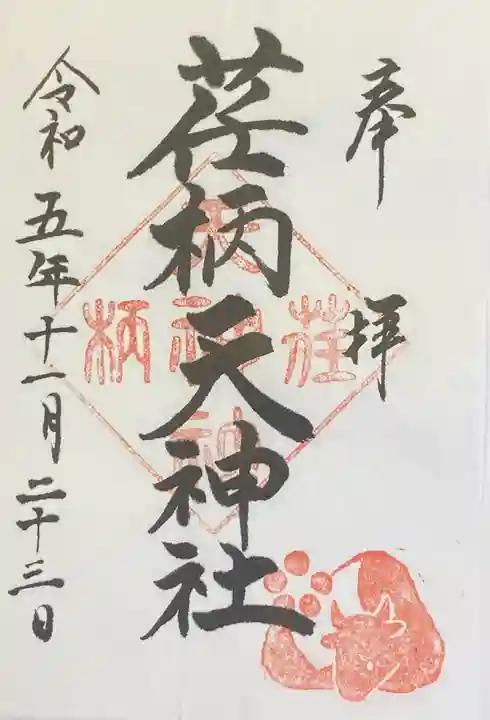 奉拝
荏柄天神社
令和五年十一月二十三日
荏
柄